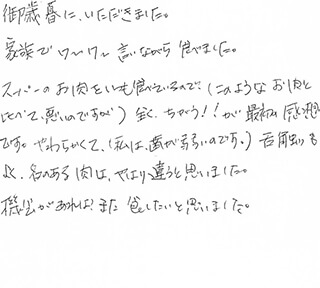 御歳暮に、いただきました。
家族でワーワー言いながら食べました。
スーパーのお肉をいつも食べているので(このようなお肉と
比べて、悪いのですが)全く、ちがう!!が最初の感想
です。やわらかくて、(私は、歯が弱いのです。)舌触りも
よく、名のある肉は、やはり違うと思いました。
機会があれば、また食したいと思いました。